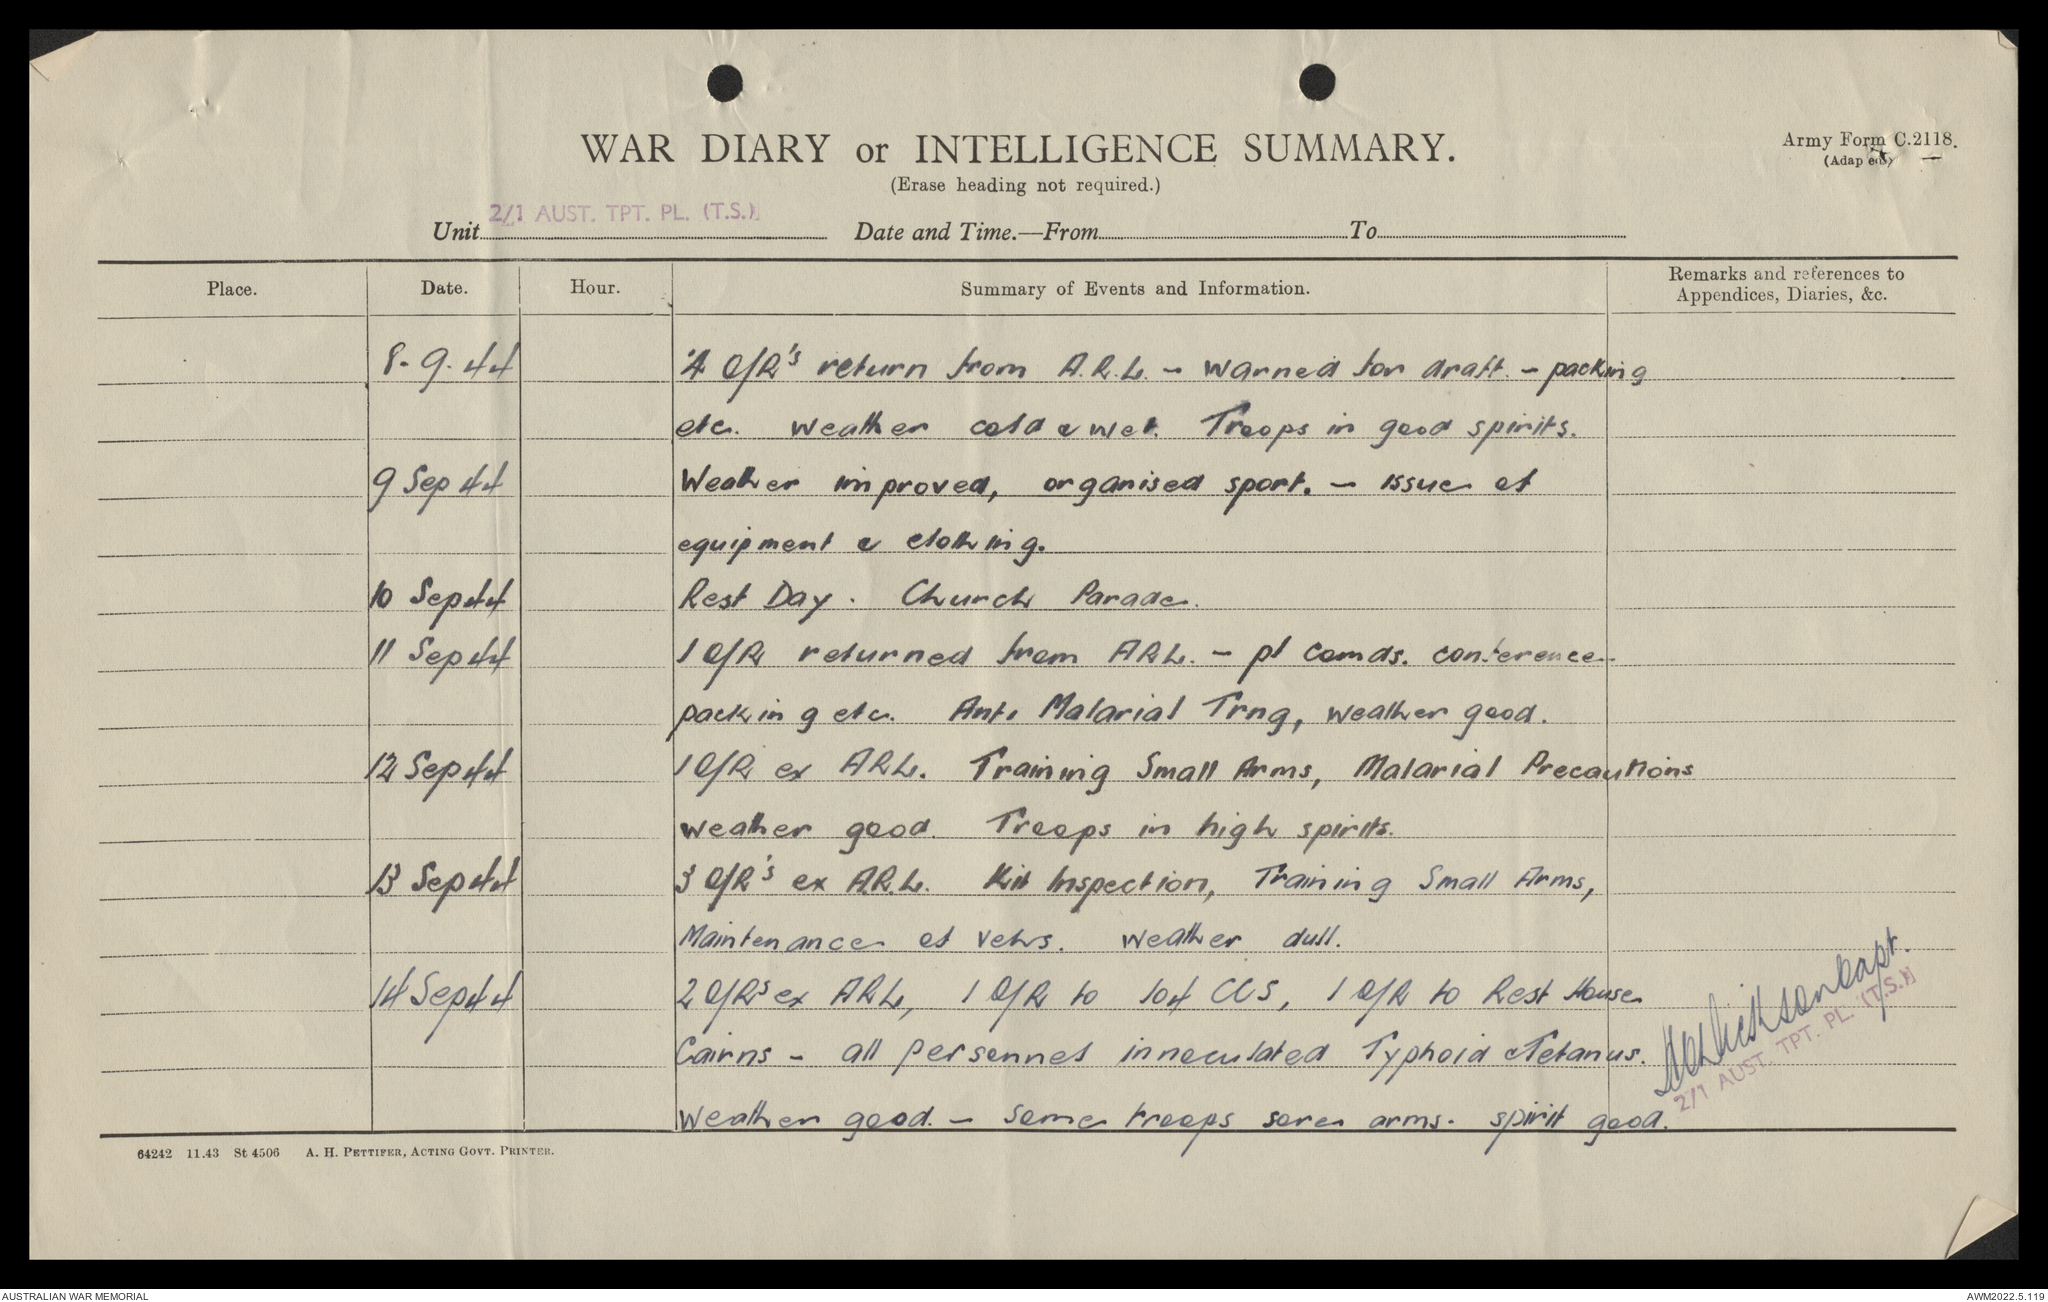 WAR DIARY or INTELLIGENCE SUMMARY.
(Erase heading not required.)
Army Form C.2118.
(Adapted)
Unit 2/1 AUST. TPT. PL. (T.S.) Date and Time.—From To
Place. Date. Hour. Summary of Events and Information. Remarks and references to
Appendices, Diaries, &c.
8.9.44 4 O/R's return from A.R.L. - warned for draft. - packing
etc. weather cold & wet. Troops in good spirits.
9 Sep 44 Weather improved, organised sport. - issue of
equipment & clothing.
10 Sep 44 Rest Day. Church Parade.
11 Sep 44 1 O/R returned from ARL. - pl comds. conference
packing etc. Anti Malarial Trng, weather good.
12 Sep 44 1 O/R ex ARL. Training Small Arms, Malarial Precautions
weather good. Troops in high spirits.
13 Sep 44 3 O/R's ex A.R.L. Kit Inspection, Training Small Arms,
Maintenance of vehs. weather dull.
14 Sep 44 2 O/R's ex ARL, 1 O/R to 104 CCS, 1 O/R to Rest House
Cairns - all personnel innoculated Typhoid & Tetanus.
weather good. - some troops sore arms. spirit good.
Dickson Capt.
2/1 AUST. TPT. PL. (T.S.)
64242 11.43 St 4506 A. H. PETTIFER, ACTING GOVT. PRINTER.
AUSTRALIAN WAR MEMORIAL AWM2022.5.119